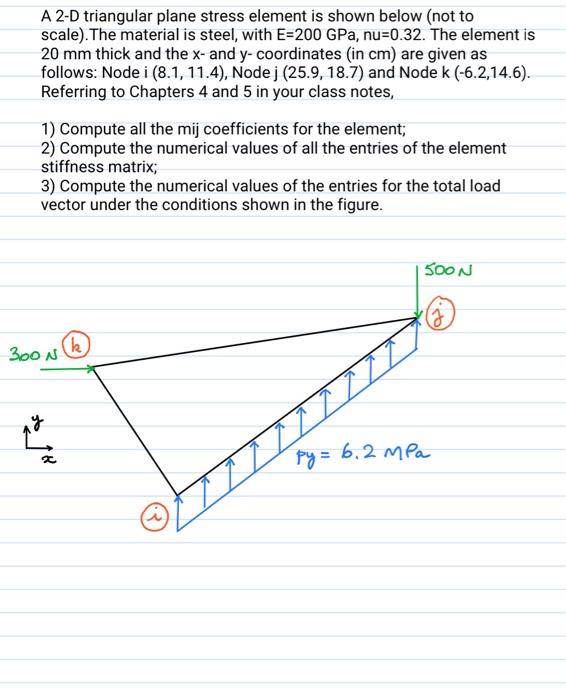 A 2-D triangular plane stress element is shown below (not to
scale).The material is steel, with E=200 GPa, nu=0.32. The element is
20 mm thick and the x- and y- coordinates (in cm) are given as
follows: Node i (8.1, 11.4), Node j (25.9, 18.7) and Node k (-6.2,14.6).
Referring to Chapters 4 and 5 in your class notes,
1) Compute all the mij coefficients for the element;
2) Compute the numerical values of all the entries of the element
stiffness matrix;
3) Compute the numerical values of the entries for the total load
vector under the conditions shown in the figure.
500N
j
k
300 N
y
x
Py = 6.2 MPa
i